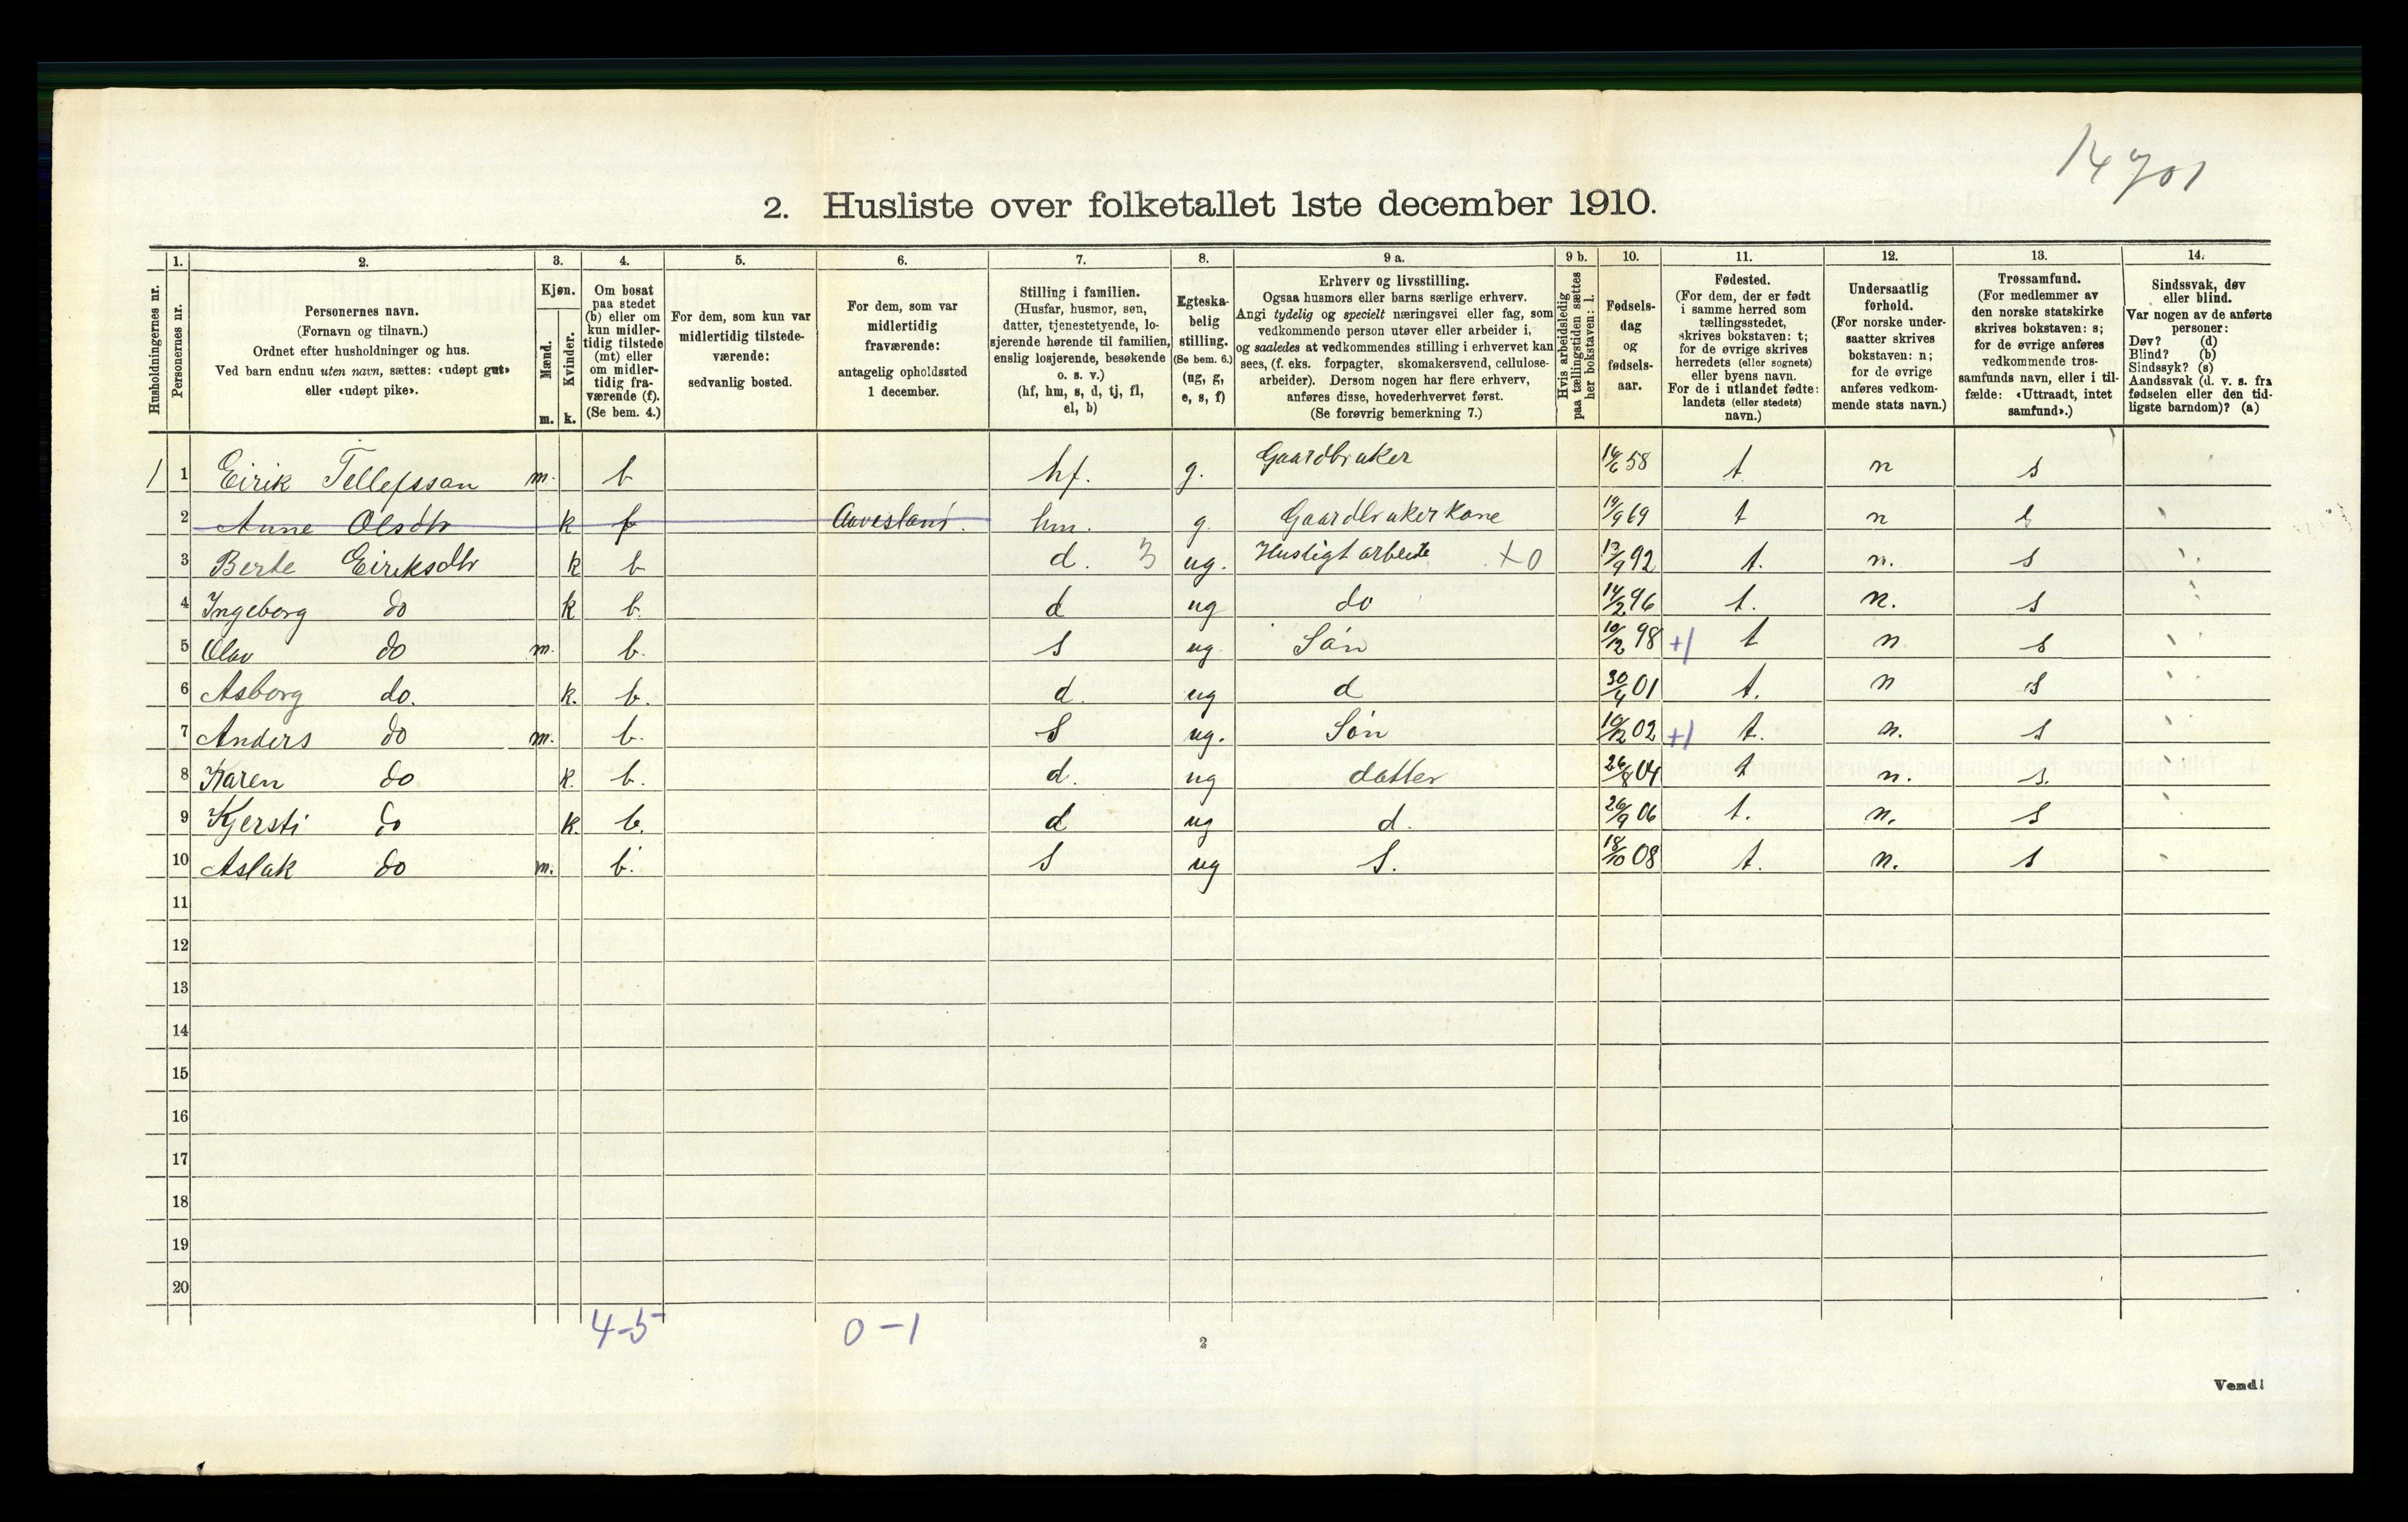 14701
2. Husliste over folketallet 1ste december 1910.
Husholdningernes nr.
1.
Personernes nr.
2.
Personernes navn.
(Fornavn og tilnavn.)
Ordnet efter husholdninger og hus.
Ved barn endnu uten navn, sættes: «udøpt gut»
eller «udøpt pike».
3.
Kjøn.
Mænd.
m.
Kvinder.
k.
4.
Om bosat
paa stedet
(b) eller om
kun midler-
tidig tilstede
(mt) eller
om midler-
tidig fra-
værende (f).
(Se bem. 4.)
5.
For dem, som kun var
midlertidig tilstede-
værende:
sedvanlig bosted.
6.
For dem, som var
midlertidig
fraværende:
antagelig opholdssted
1 december.
7.
Stilling i familien.
(Husfar, husmor, søn,
datter, tjenestetyende, lo-
sjerende hørende til familien,
enslig losjerende, besøkende
o. s. v.)
(hf, hm, s, d, tj, fl,
el, b)
8.
Egteska-
belig
stilling.
(Se bem. 6.)
(ug, g,
e, s, f)
9 a.
Erhverv og livsstilling.
Ogsaa husmors eller barns særlige erhverv.
Angi tydelig og specielt næringsvei eller fag, som
vedkommende person utøver eller arbeider i,
og saaledes at vedkommendes stilling i erhvervet kan
sees, (f. eks. forpagter, skomakersvend, cellulose-
arbeider). Dersom nogen har flere erhverv,
anføres disse, hovederhvervet først.
(Se forøvrig bemerkning 7.)
9 b.
Hvis arbeidsledig
paa tællingstiden sættes
her bokstaven: l.
10.
Fødsels-
dag
og
fødsels-
aar.
11.
Fødested.
(For dem, der er født
i samme herred som
tællingsstedet,
skrives bokstaven: t;
for de øvrige skrives
herredets (eller sognets)
eller byens navn.
For de i utlandet fødte:
landets (eller stedets)
navn.)
12.
Undersaatlig
forhold.
(For norske under-
saatter skrives
bokstaven: n;
for de øvrige
anføres vedkom-
mende stats navn.)
13.
Trossamfund.
(For medlemmer av
den norske statskirke
skrives bokstaven: s;
for de øvrige anføres
vedkommende tros-
samfunds navn, eller i til-
fælde: «Uttraadt, intet
samfund».)
14.
Sindssvak, døv
eller blind.
Var nogen av de anførte
personer:
Døv? (d)
Blind? (b)
Sindssyk? (s)
Aandssvak (d. v. s. fra
fødselen eller den tid-
ligste barndom)? (a)
1 1 Eirik Tellefssan m. b hf. g. Gaardbruker 14/6 58 t n s
2 Anne Olsdtr k f hm. g. Gaardbrukerkone 19/9 69 t n s
3 Berte Eiriksdtr k b d. 3 ug. Husligt arbeide +0 13/9 92 t. n. s
4 Ingeborg do k b. d ug do 14/2 96 t. n. s
5 Olav do m. b. s ug. Søn 10/12 98 +1 t n s
6 Asborg do. k. b. d. ug d 30/4 01 t. n s
7 Anders do m. b. s ug. Søn 10/12 02 +1 t. n. s
8 Karen do k. b. d. ug datter 26/8 04 t n. s.
9 Kjersti do k. b. d ug d. 26/9 06 t. n. s
10 Aslak do m. b. s ug s. 18/10 08 t. n. s
11
12
13
14
15
16
17
18
19
20
4-5 0-1
2
Vend!